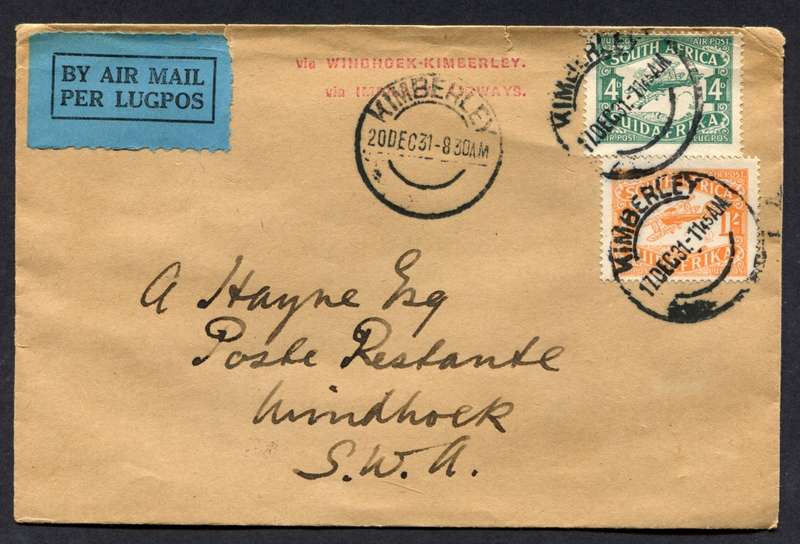 BY AIR MAIL
PER LUGPOS
via WINDHOEK-KIMBERLEY.
via AIRWAYS.
KIMBERLEY
20DEC31-8 30AM
KIMBERLEY
17DEC31-11 45AM
AIR POST
SOUTH AFRICA
4D 4D
SUIDAFRIKA
AIR POST LUGPOS
KIMBERLEY
17DEC31-11 45AM
POST
SOUTH AFRICA
1/-
SUIDAFRIKA
A Hayne Esq
Poste Restante
Windhoek
S.W.A.